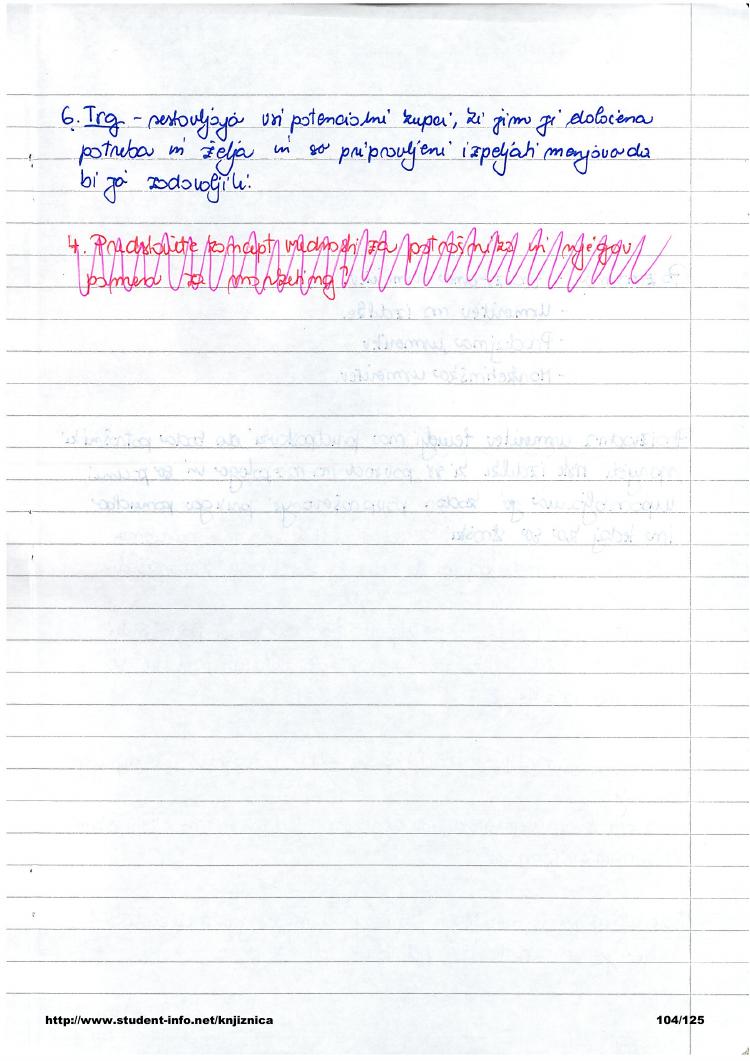 6. Trg - sestavljajo vsi potencialni kupci, ki jim je določena
potreba in želja in so pripravljeni izpeljati menjavo da
bi jo zadovoljili.
4. Predstavite koncept vrednosti za potrošnika in njegov
pomen za marketing?
http://www.student-info.net/knjiznica
104/125